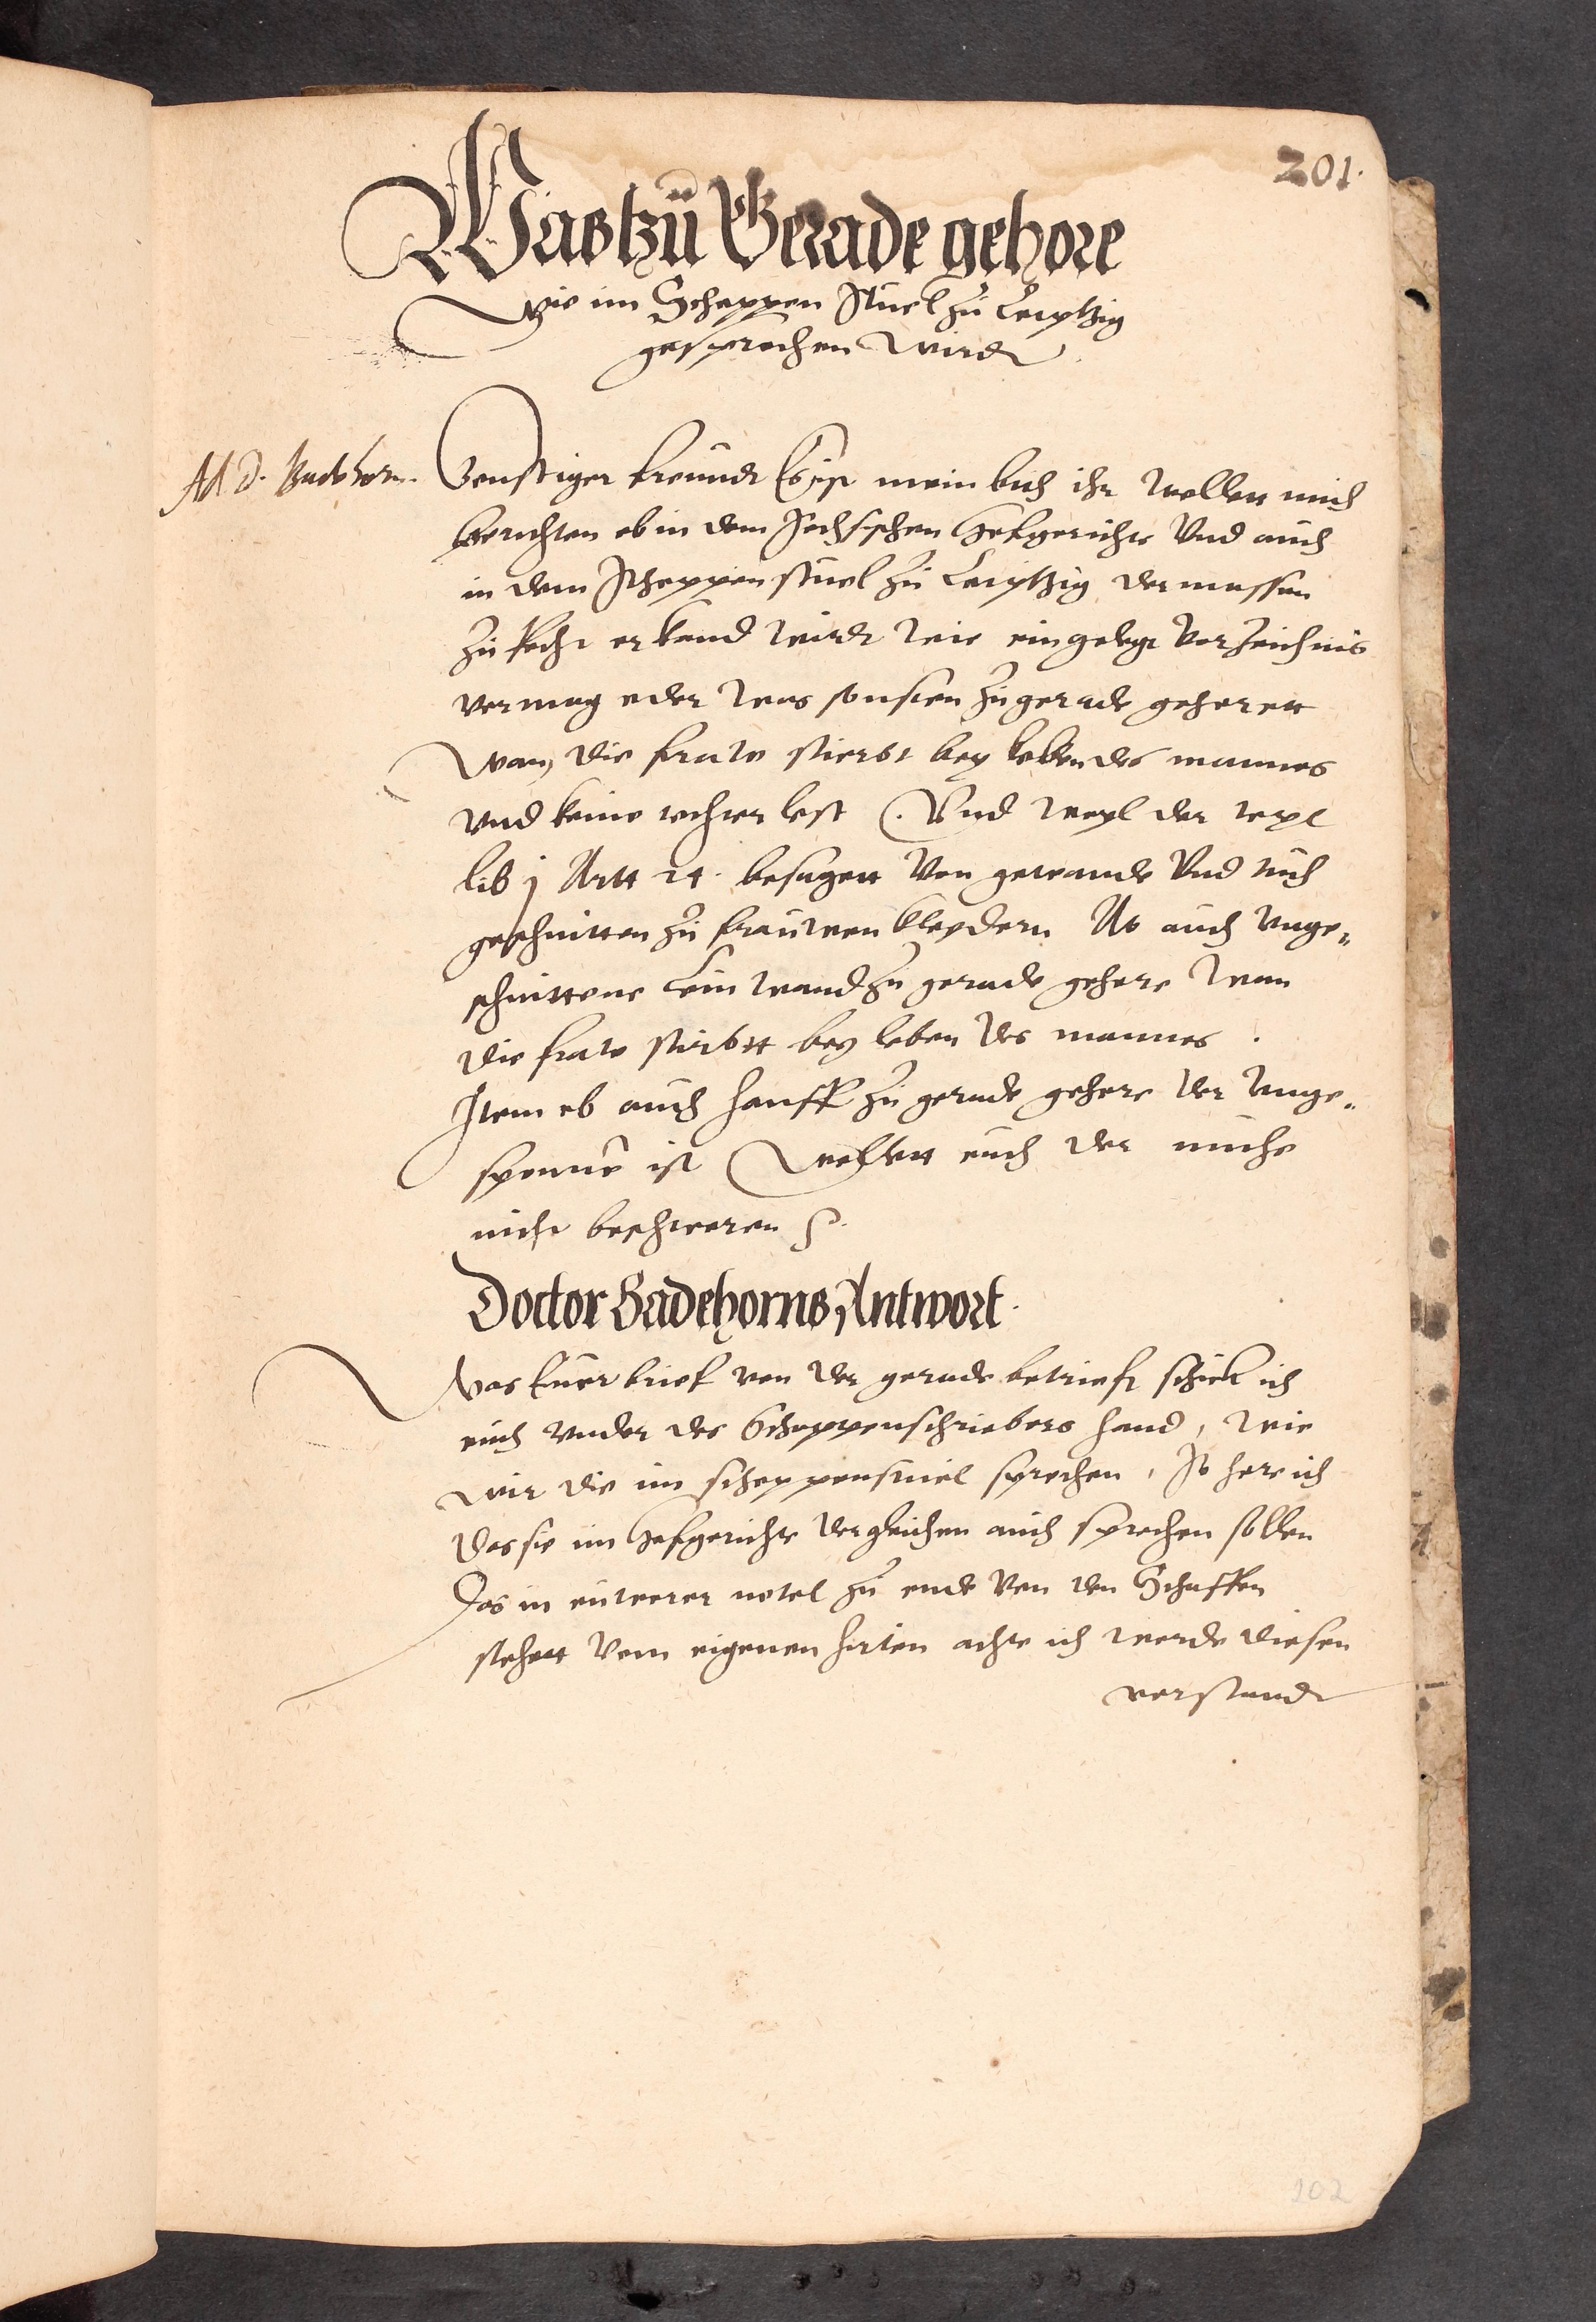 201.
Was tzu Gerade gehore
Wie im Scheppen stuel zu Leyptzig
gesprochen wirdt
Ad D. Badehorn.
Gonstiger freundt Es ist mein bith ihr wollett mich
berichten ob in dem sechsischen Hofgerichte Vnd auch
in dem scheppen stuel zu Leiptzig dermassen
zu Recht erkand wirdt wie eingelegt Vorzeichnis
vermag oder was sonsten zu gerade gehorett
wan die fraw stirbt bey leben des mannes
vnd keine tochter lest. Vnd weyl der text
lib j Artt 24. besagett Von gewande Vnd nich
geschnitten zu frauwen kleydern Ab auch vnge„
schnittene Leinwand zu gerade gehore wan
die fraw stirbtt bey leben des mannes.
Item ob auch hanff zu gerade gehore der vnge„
sponnē ist Wollett euch der muhe
nicht beschweren
Doctor Badehorns Antwort.
Was Euer brief von der gerade betrieft schick ich
euch vnder des Scheppenschriebers hand, wie
wir die im scheppenstuel sprechen, So hore ich
das sie im Hofgerichte dergleichen auch sprechen sollen
Das in euwerer notel zu ende Von den Schaffen
stehett Vom eigenen hirten achte ich werde diesen
verstandt
102